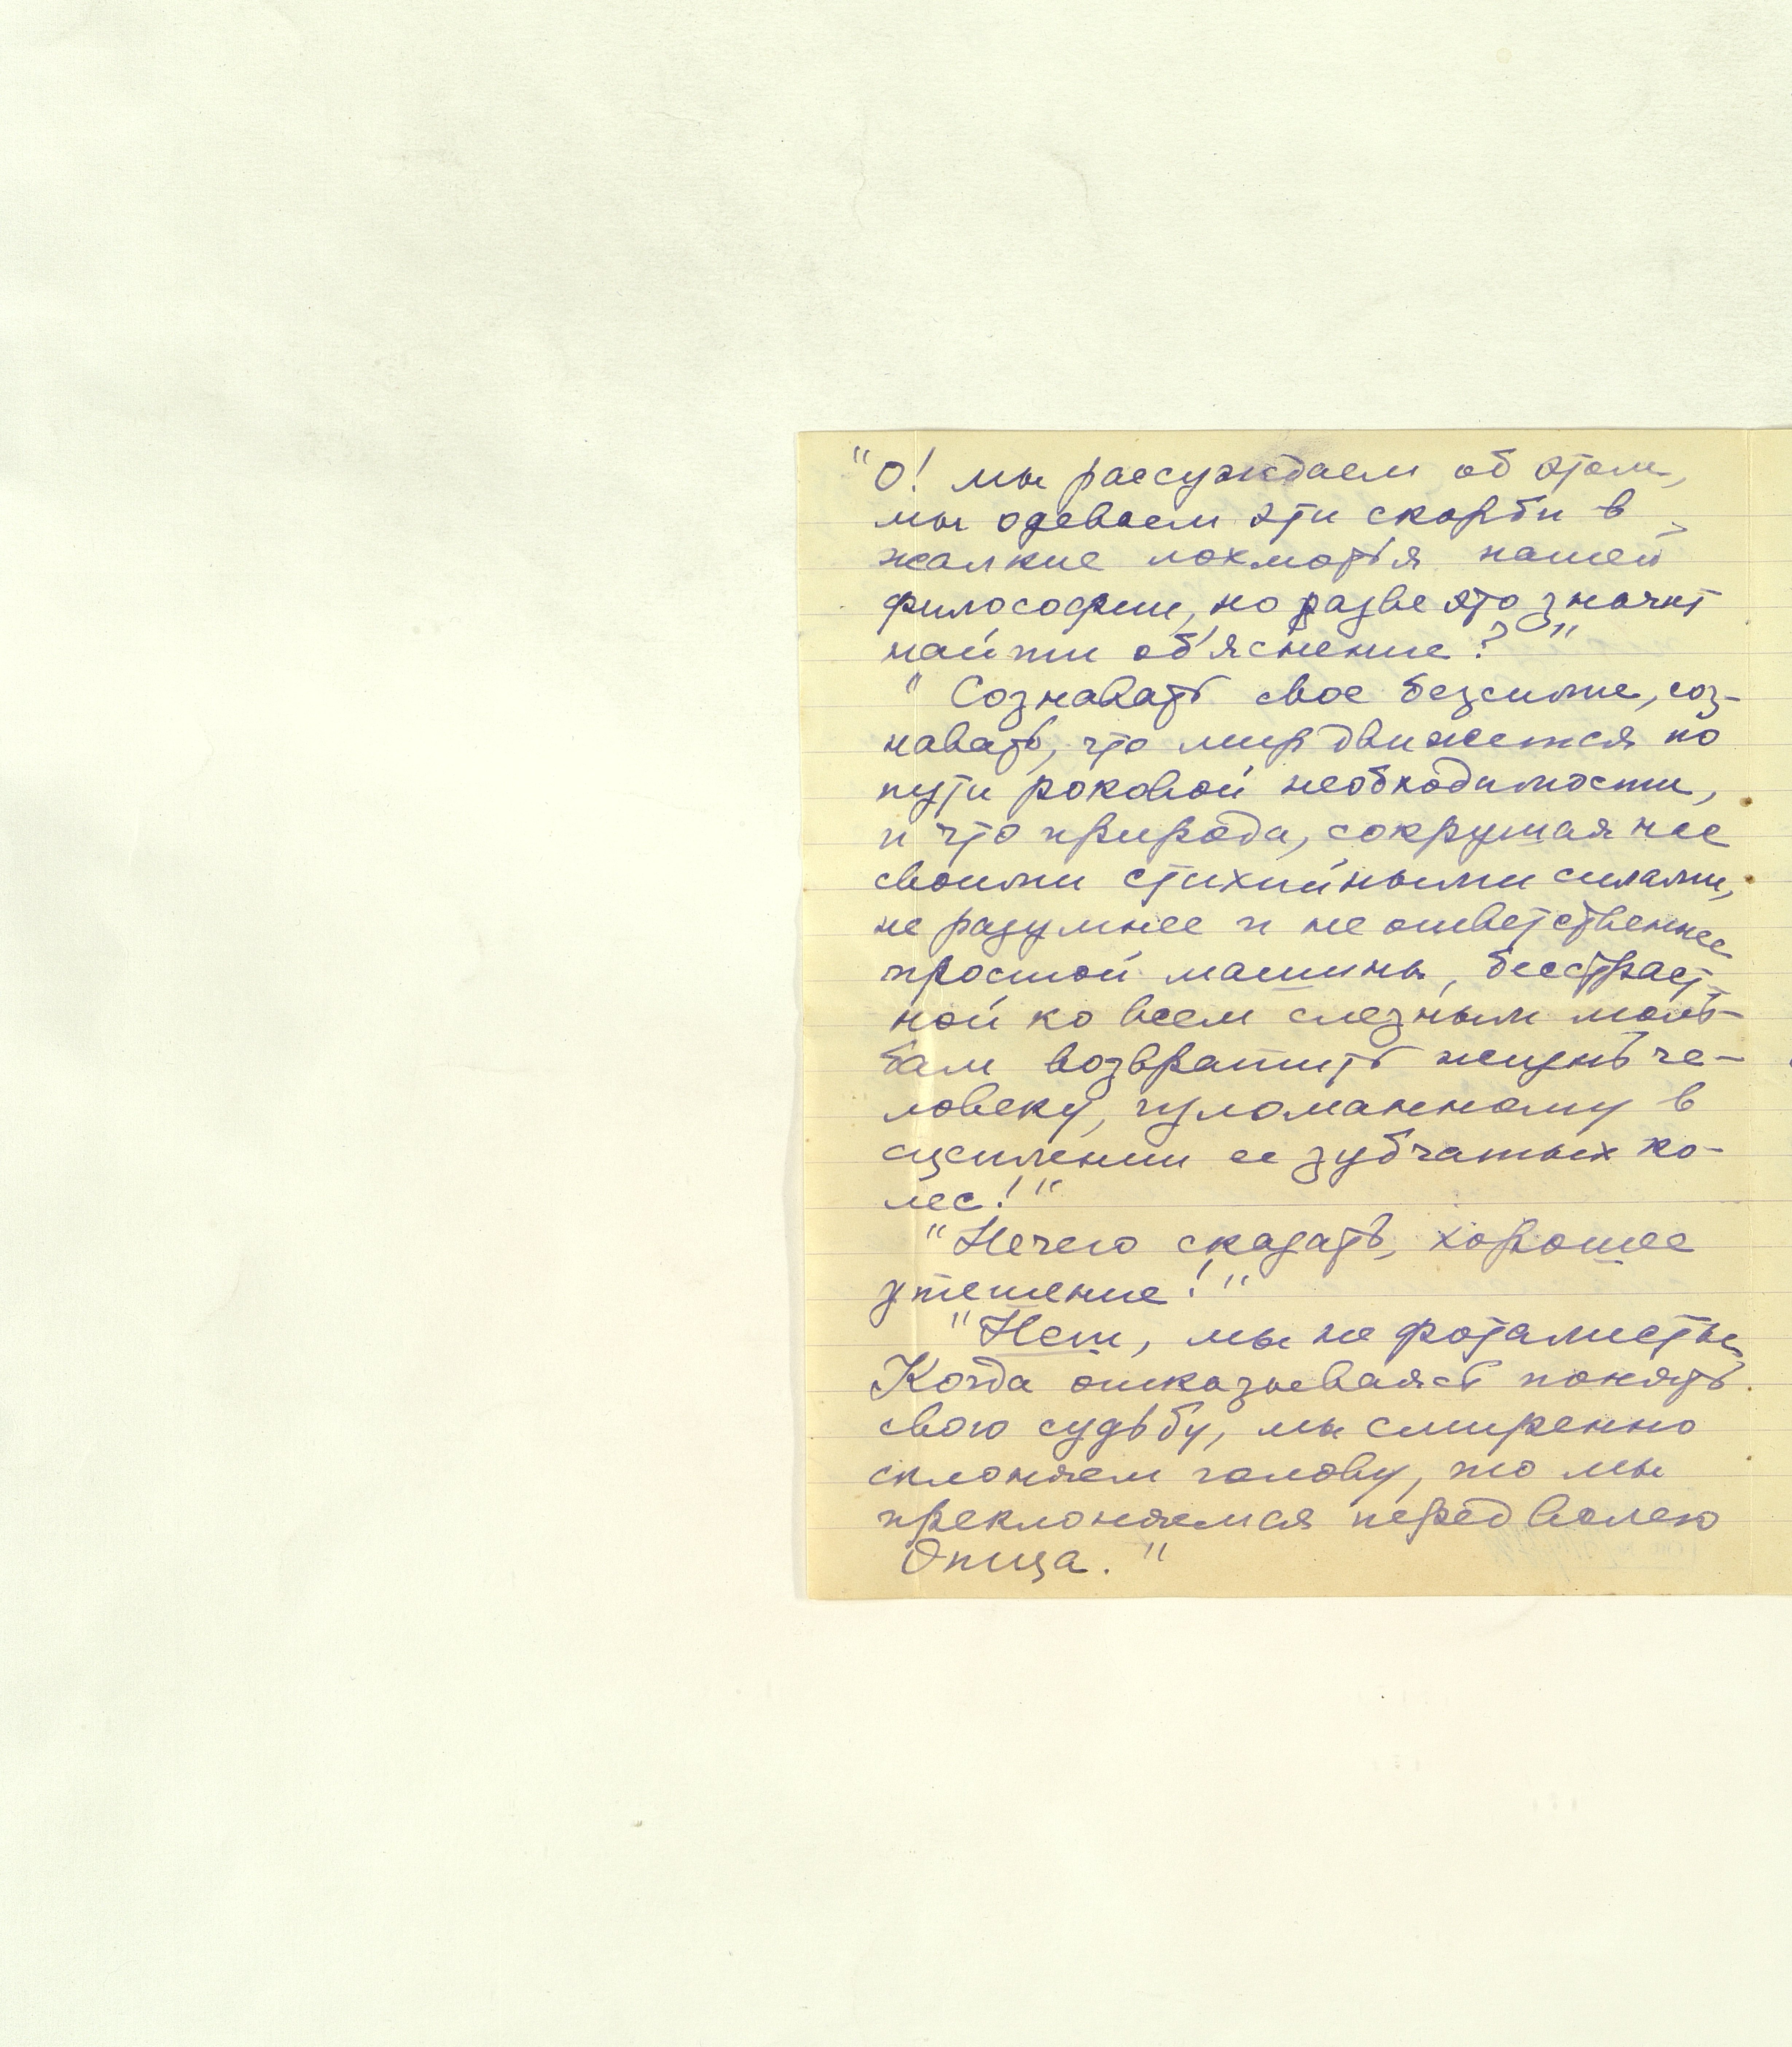 "О! мы рассуждаем об этом,
мы одеваем эти скорби в
жалкие лохмотья нашей
философии, но разве это значит
найти об'яснение?"
"Сознавать свое безсилие, соз-
навать, что мир движется по
пути роковой необходимости,
и что природа, сокрушая нас
своими стихийными силами,
не разумнее и не ответственнее
простой машины, бесстраст-
ной ко всем слезным моль-
бам возвратить жизнь че-
ловеку, изломанному в
сцеплении ее зубчатых ко-
лес!"
"Нечего сказать, хорошее
утешение!"
"Нет, мы не фаталисты,
Когда отказываясь понять
свою судьбу, мы смиренно
склоняем голову, то мы
преклоняемся перед волею
Отца."